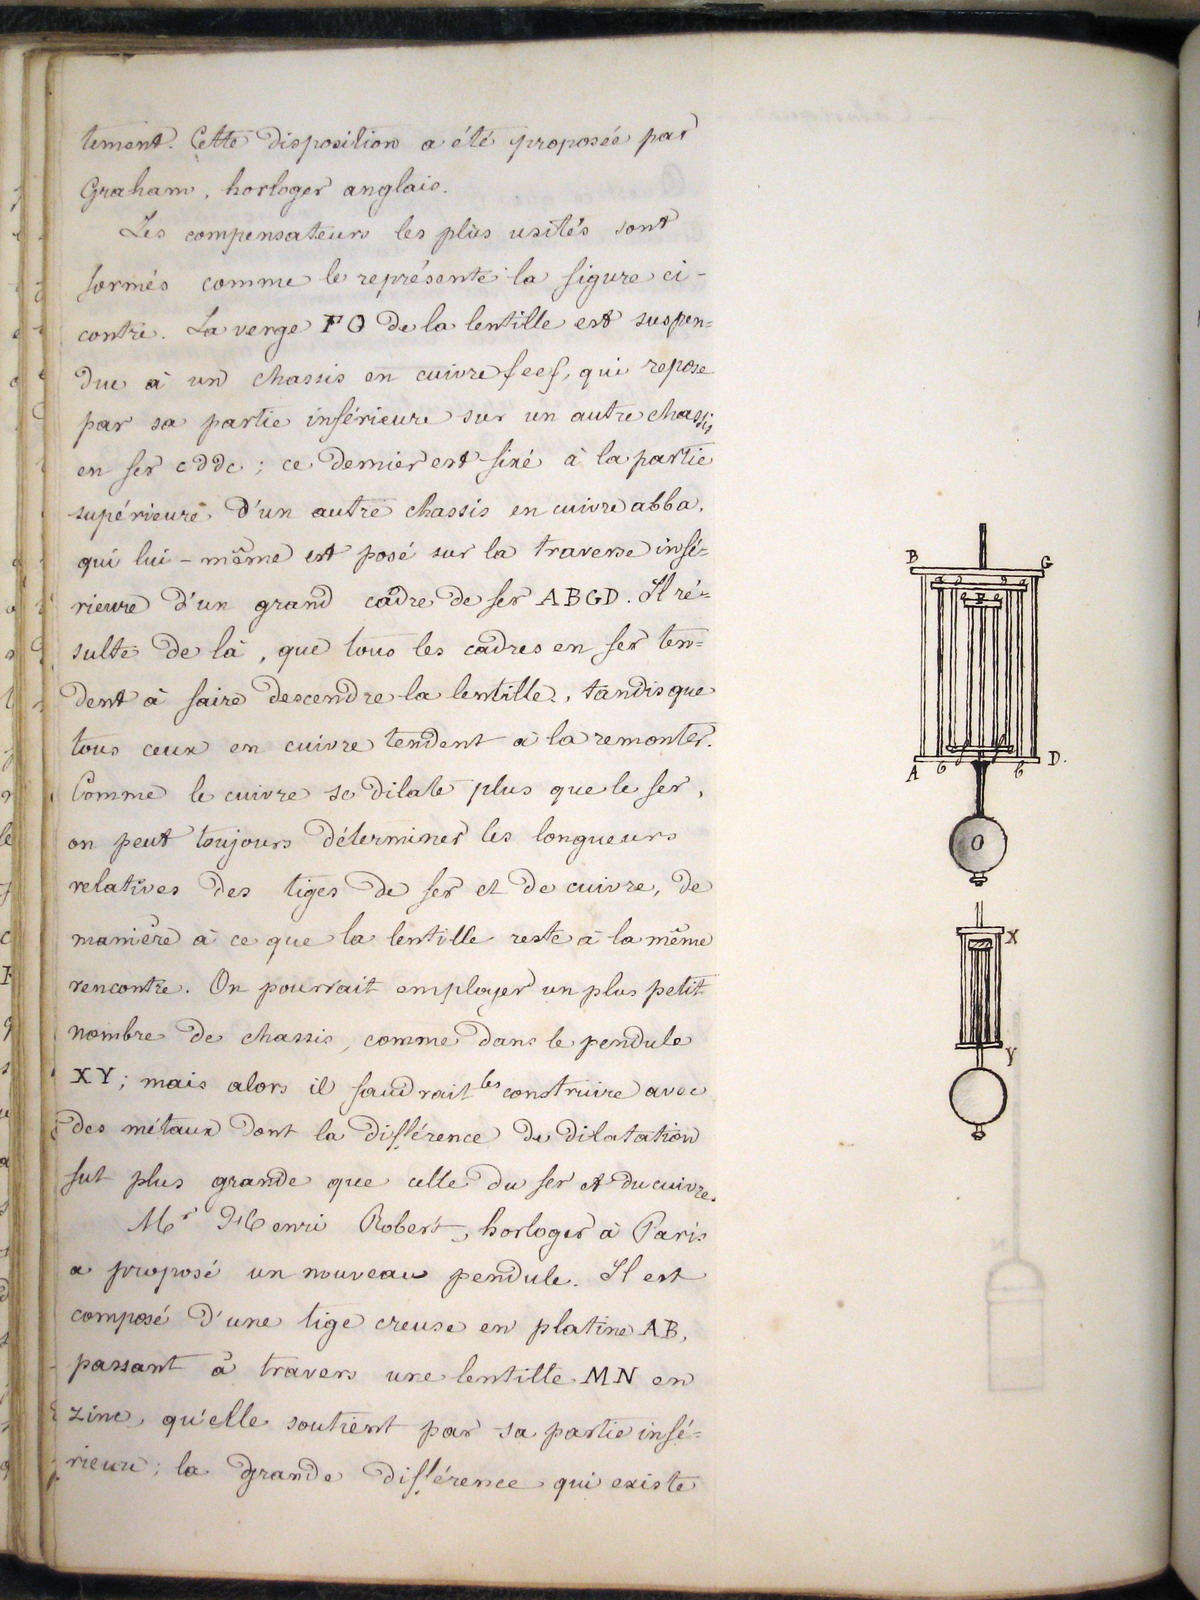 tement. Cette disposition a été proposée par
Graham, horloger anglais.
Les compensateurs les plus usités sont
formés comme le représente la figure ci-
contre. La verge FO de la lentille est suspen=
due à un chassis en cuivre feef, qui repose
par sa partie inférieure sur un autre chassis
en fer cddc ; ce dernier est fixé à la partie
supérieure d'un autre chassis en cuivre abba,
qui lui-même est posé sur la traverse infé=
rieure d'un grand cadre de fer ABGD. Il ré=
sulte de là, que tous les cadres en fer ten=
dent à faire descendre la lentille, tandis que
tous ceux en cuivre tendent à la remonter.
Comme le cuivre se dilate plus que le fer,
on peut toujours déterminer les longueurs
relatives des tiges de fer et de cuivre, de
manière à ce que la lentille reste à la même
rencontre. On pourrait employer un plus petit
nombre de chassis, comme dans le pendule
XY; mais alors il faudrait les construire avec
des métaux dont la différence de dilatation
fut plus grande que celle du fer et du cuivre.
Mr Henri Robert, horloger à Paris
a proposé un nouveau pendule. Il est
composé d'une tige creuse en platine AB,
passant à travers une lentille MN en
zinc, qu'elle soutient par sa partie infé=
rieure; la grande différence qui existe
B G
F
A b b D.
O
X
Y